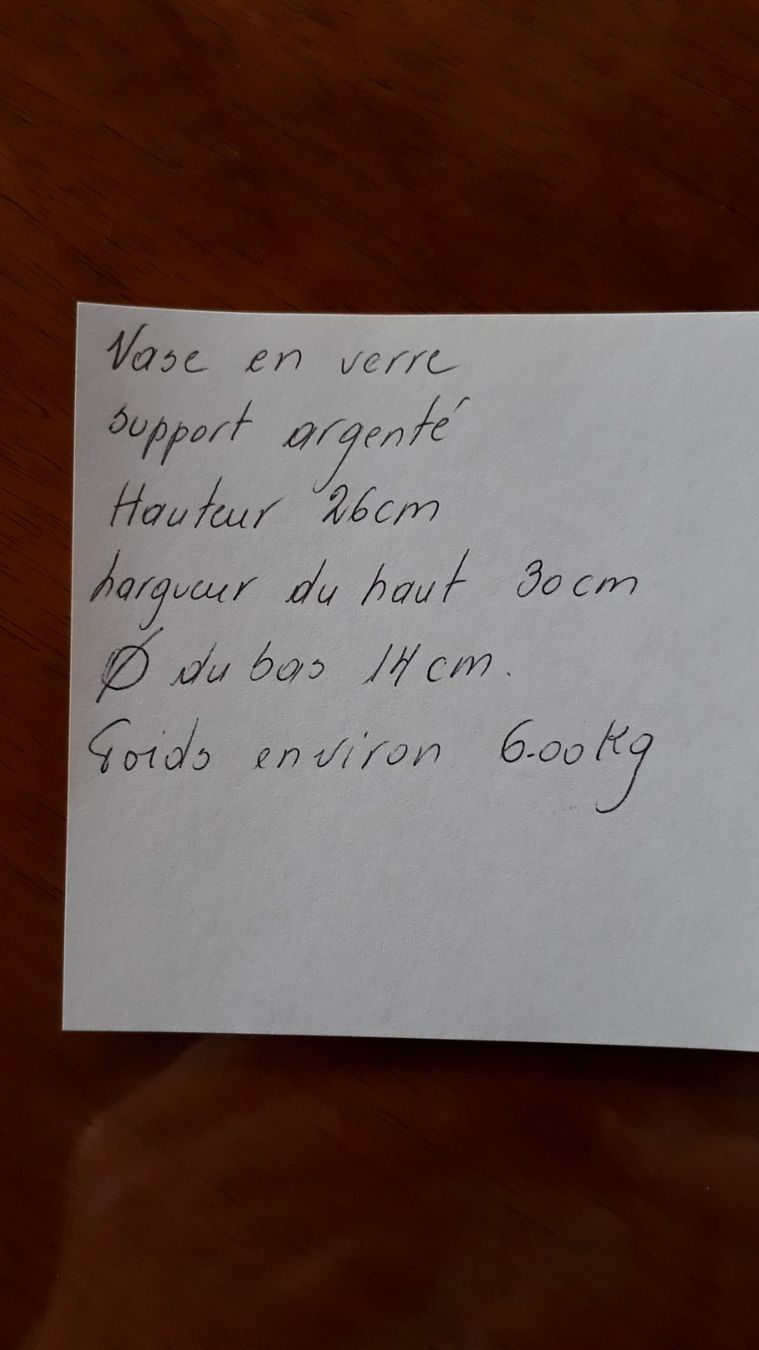 Vase en verre
support argenté
Hauteur 26cm
Largueur du haut 30cm
Ø du bas 14cm.
Poids environ 6.00Kg